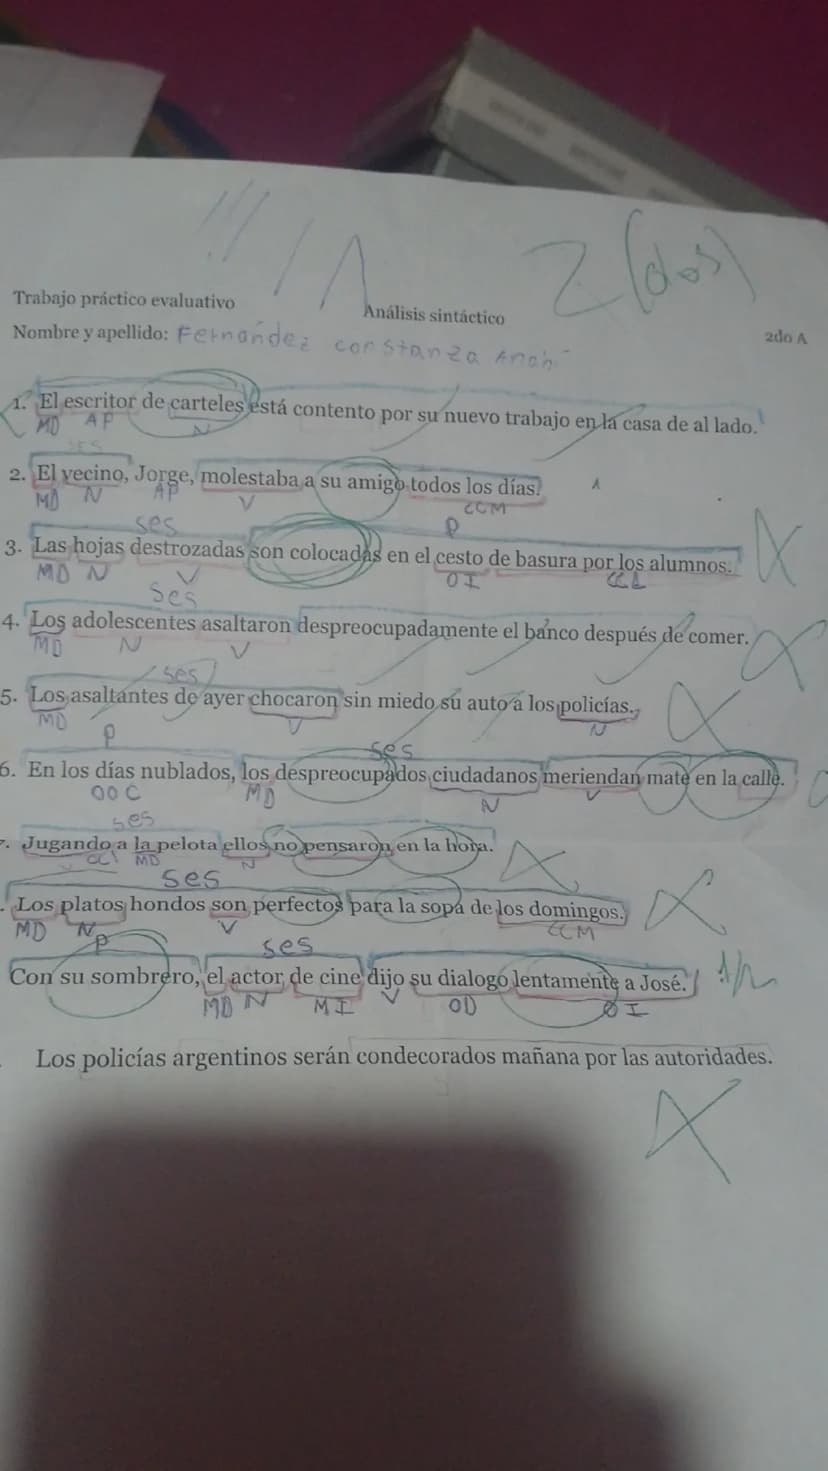 2 (dos)
Trabajo práctico evaluativo
Análisis sintáctico
2do A
Nombre y apellido: Fernandez constanza Anahi
1. El escritor de carteles está contento por su nuevo trabajo en la casa de al lado.
MD AP N
SES
2. El vecino, Jorge, molestaba a su amigo todos los días.
MD N AP V CCM
ses P
3. Las hojas destrozadas son colocadas en el cesto de basura por los alumnos.
MD N V OI CCL
Ses
4. Los adolescentes asaltaron despreocupadamente el banco después de comer.
MD N V
ses
5. Los asaltantes de ayer chocaron sin miedo su auto a los policías.
MD P V N
ses
6. En los días nublados, los despreocupados ciudadanos meriendan mate en la calle.
OOC MD N V
ses
. Jugando a la pelota ellos no pensaron en la hora.
CC MD N
ses
. Los platos hondos son perfectos para la sopa de los domingos.
MD N V CCM
P ses
Con su sombrero, el actor de cine dijo su dialogo lentamente a José. 1/2
MD N MI V OD OI
Los policías argentinos serán condecorados mañana por las autoridades.